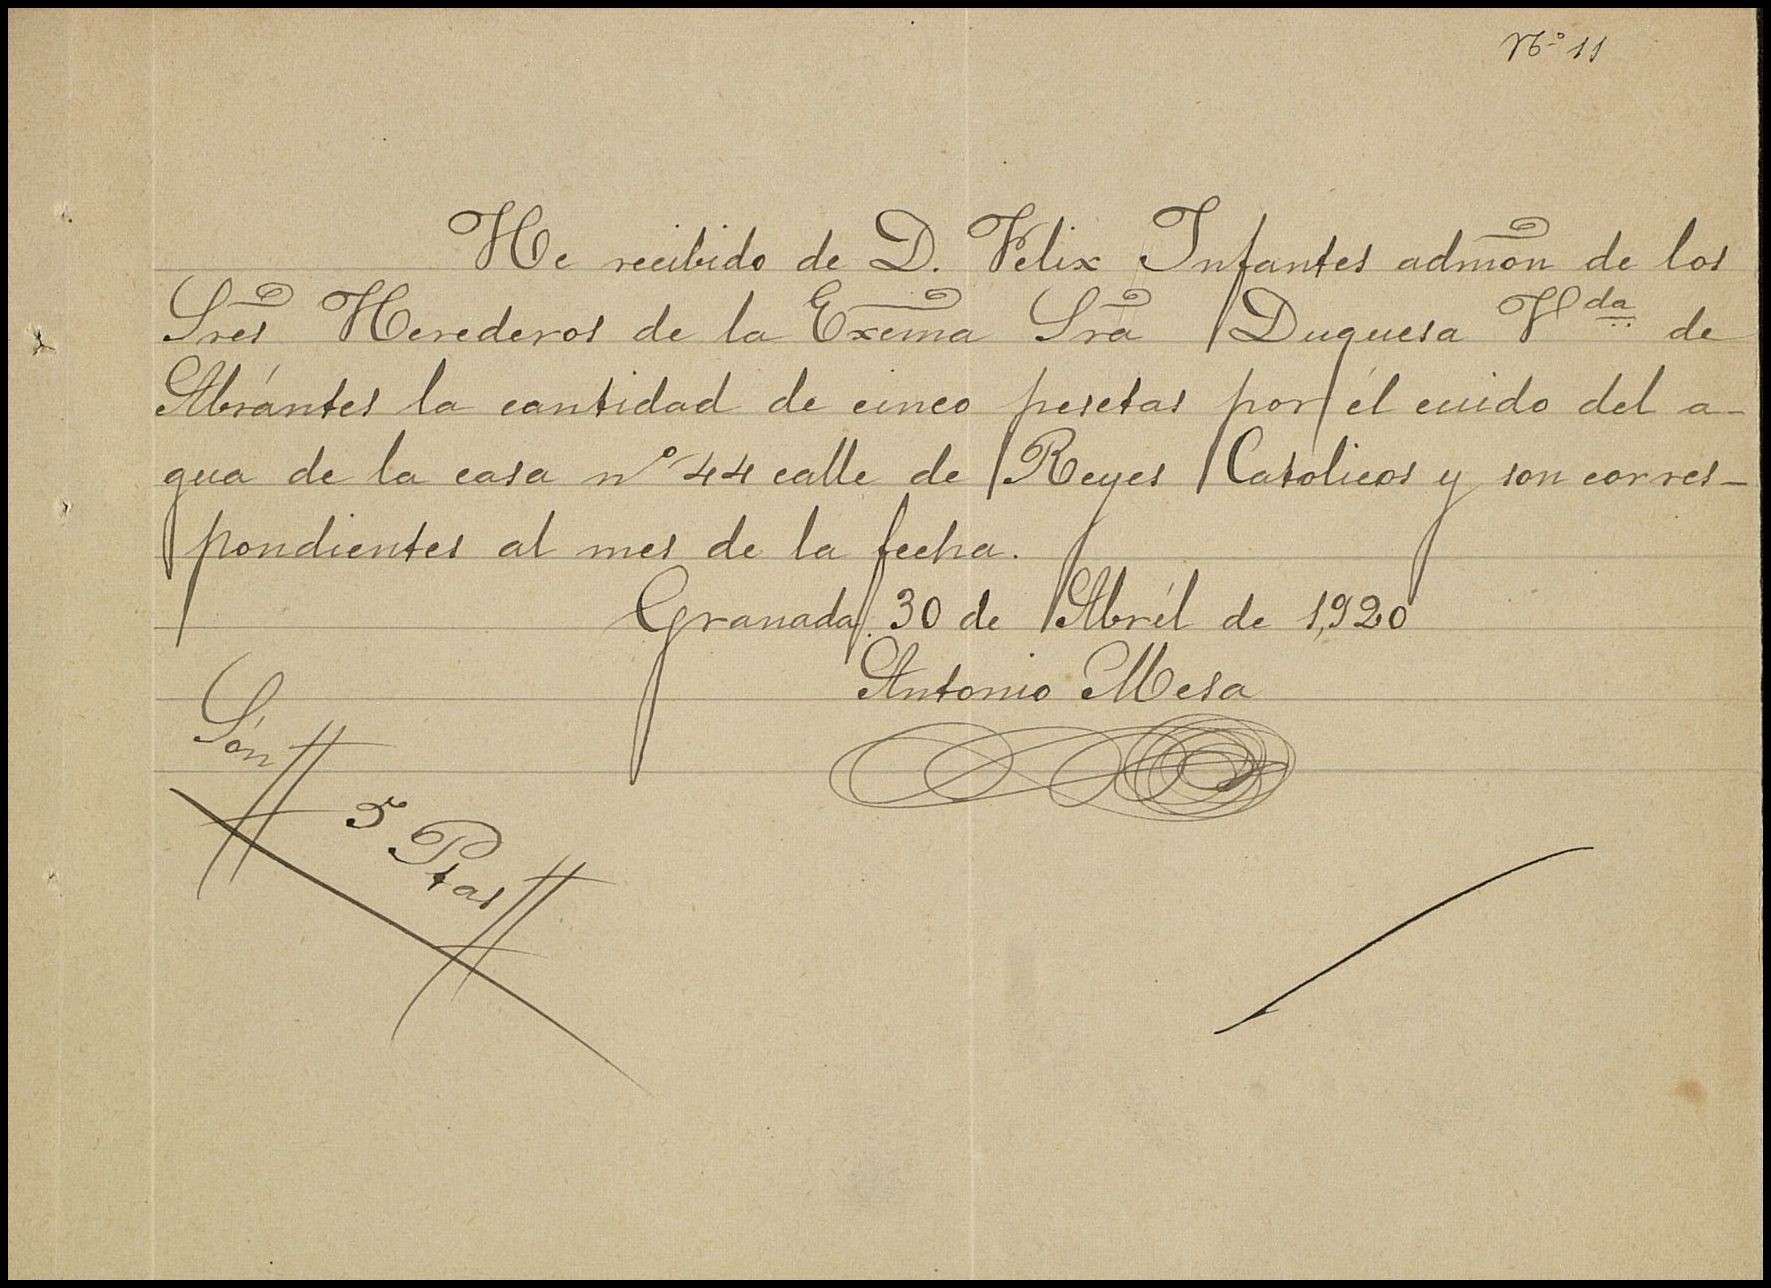 Nº 11
He recibido de D. Felix Infantes admon de los
Sres Herederos de la Exema Sra Duquesa Vda de
Abrántes la cantidad de cinco pesetas por él cuido del a-
gua de la casa nº 44 calle de Reyes Catolicos y son corres-
pondientes al mes de la fecha.
Granada 30 de Abril de 1,920
Antonio Mesa
Són
5 Ptas